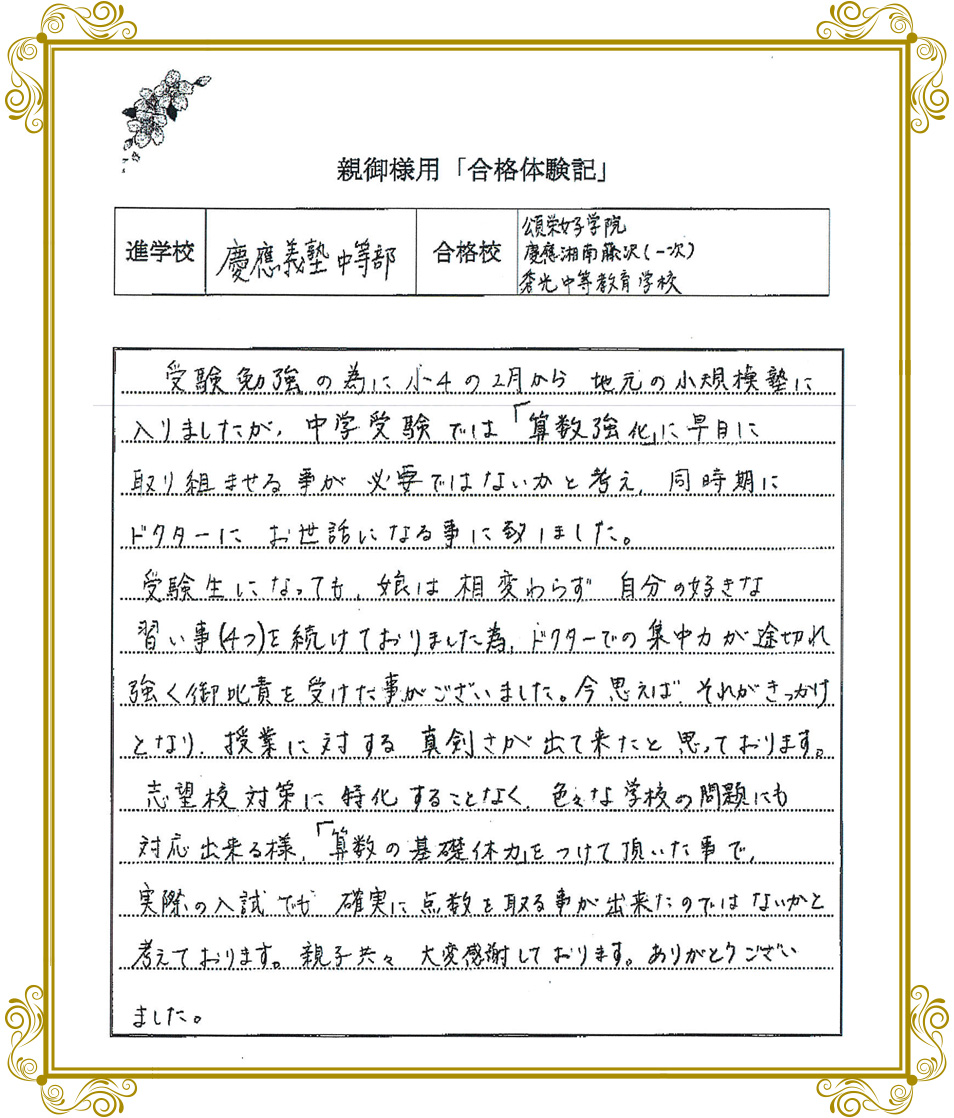 親御様用「合格体験記」
進学校
慶應義塾中等部
合格校
頌栄女子学院
慶應湘南藤沢(一次)
秀光中等教育学校
受験勉強の為に小4の2月から地元の小規模塾に
入りましたが、中学受験では「算数強化」に早目に
取り組ませる事が必要ではないかと考え、同時期に
ドクターにお世話になる事に致しました。
受験生になっても、娘は相変わらず自分の好きな
習い事(4つ)を続けておりました為、ドクターでの集中力が途切れ
強く御叱責を受けた事がございました。今思えば、それがきっかけ
となり、授業に対する真剣さが出て来たと思っております。
志望校対策に特化することなく、色々な学校の問題にも
対応出来る様、「算数の基礎体力」をつけて頂いた事で、
実際の入試でも確実に点数を取る事が出来たのではないかと
考えております。親子共々大変感謝しております。ありがとうござい
ました。